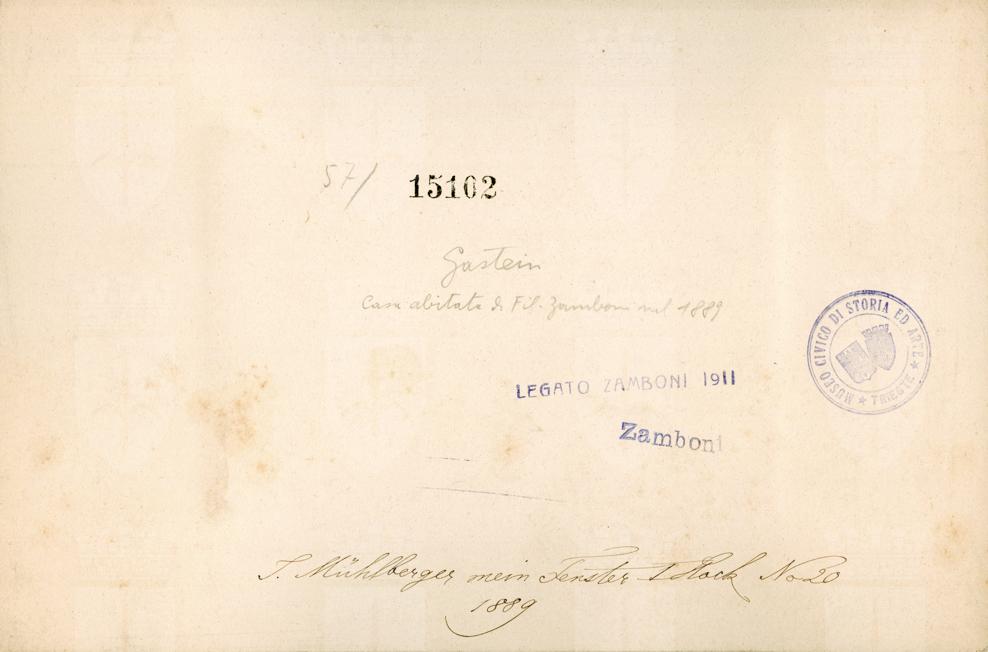 57/ 15102
Gastein
Casa abitata di Fil. Zamboni nel 1889
MUSEO CIVICO DI STORIA ED ARTE ★ TRIESTE ★
LEGATO ZAMBONI 1911
Zamboni
Mühlberger mein Fenster 1 Stock No 20
1889